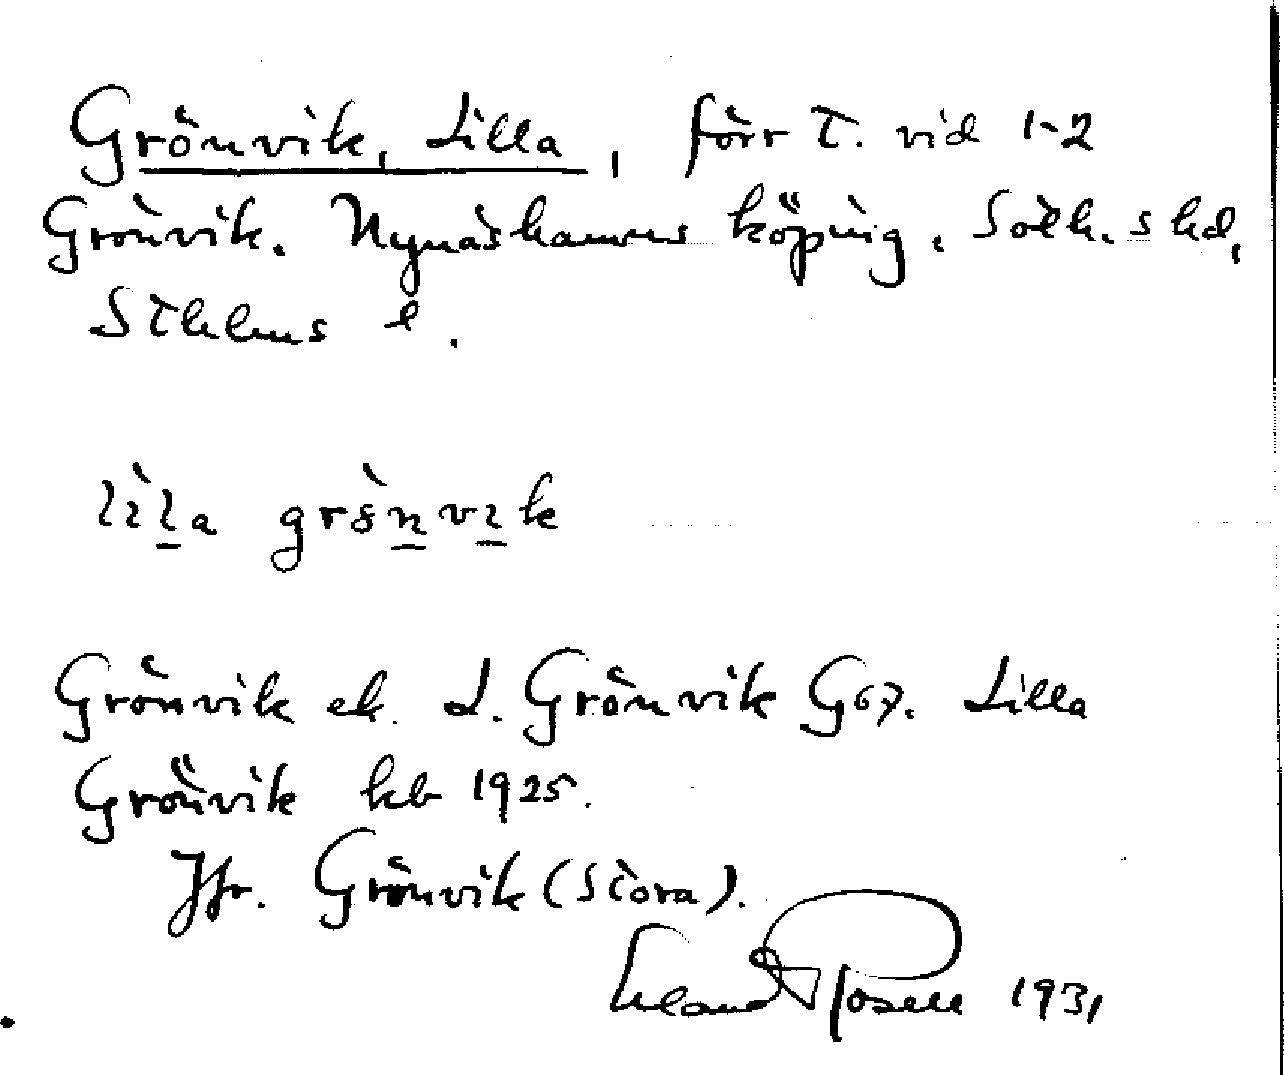 Grönvik, Lilla, förr t. vid 1-2
Grönvik. Nynäshamns köping. Soth.s hd,
Sthlms l.
lìla grònvik
Grönvik ek. L. Grönvik G67. Lilla
Grönvik kb 1925.
Jfr. Grönvik (Stora).
Rosell 1931